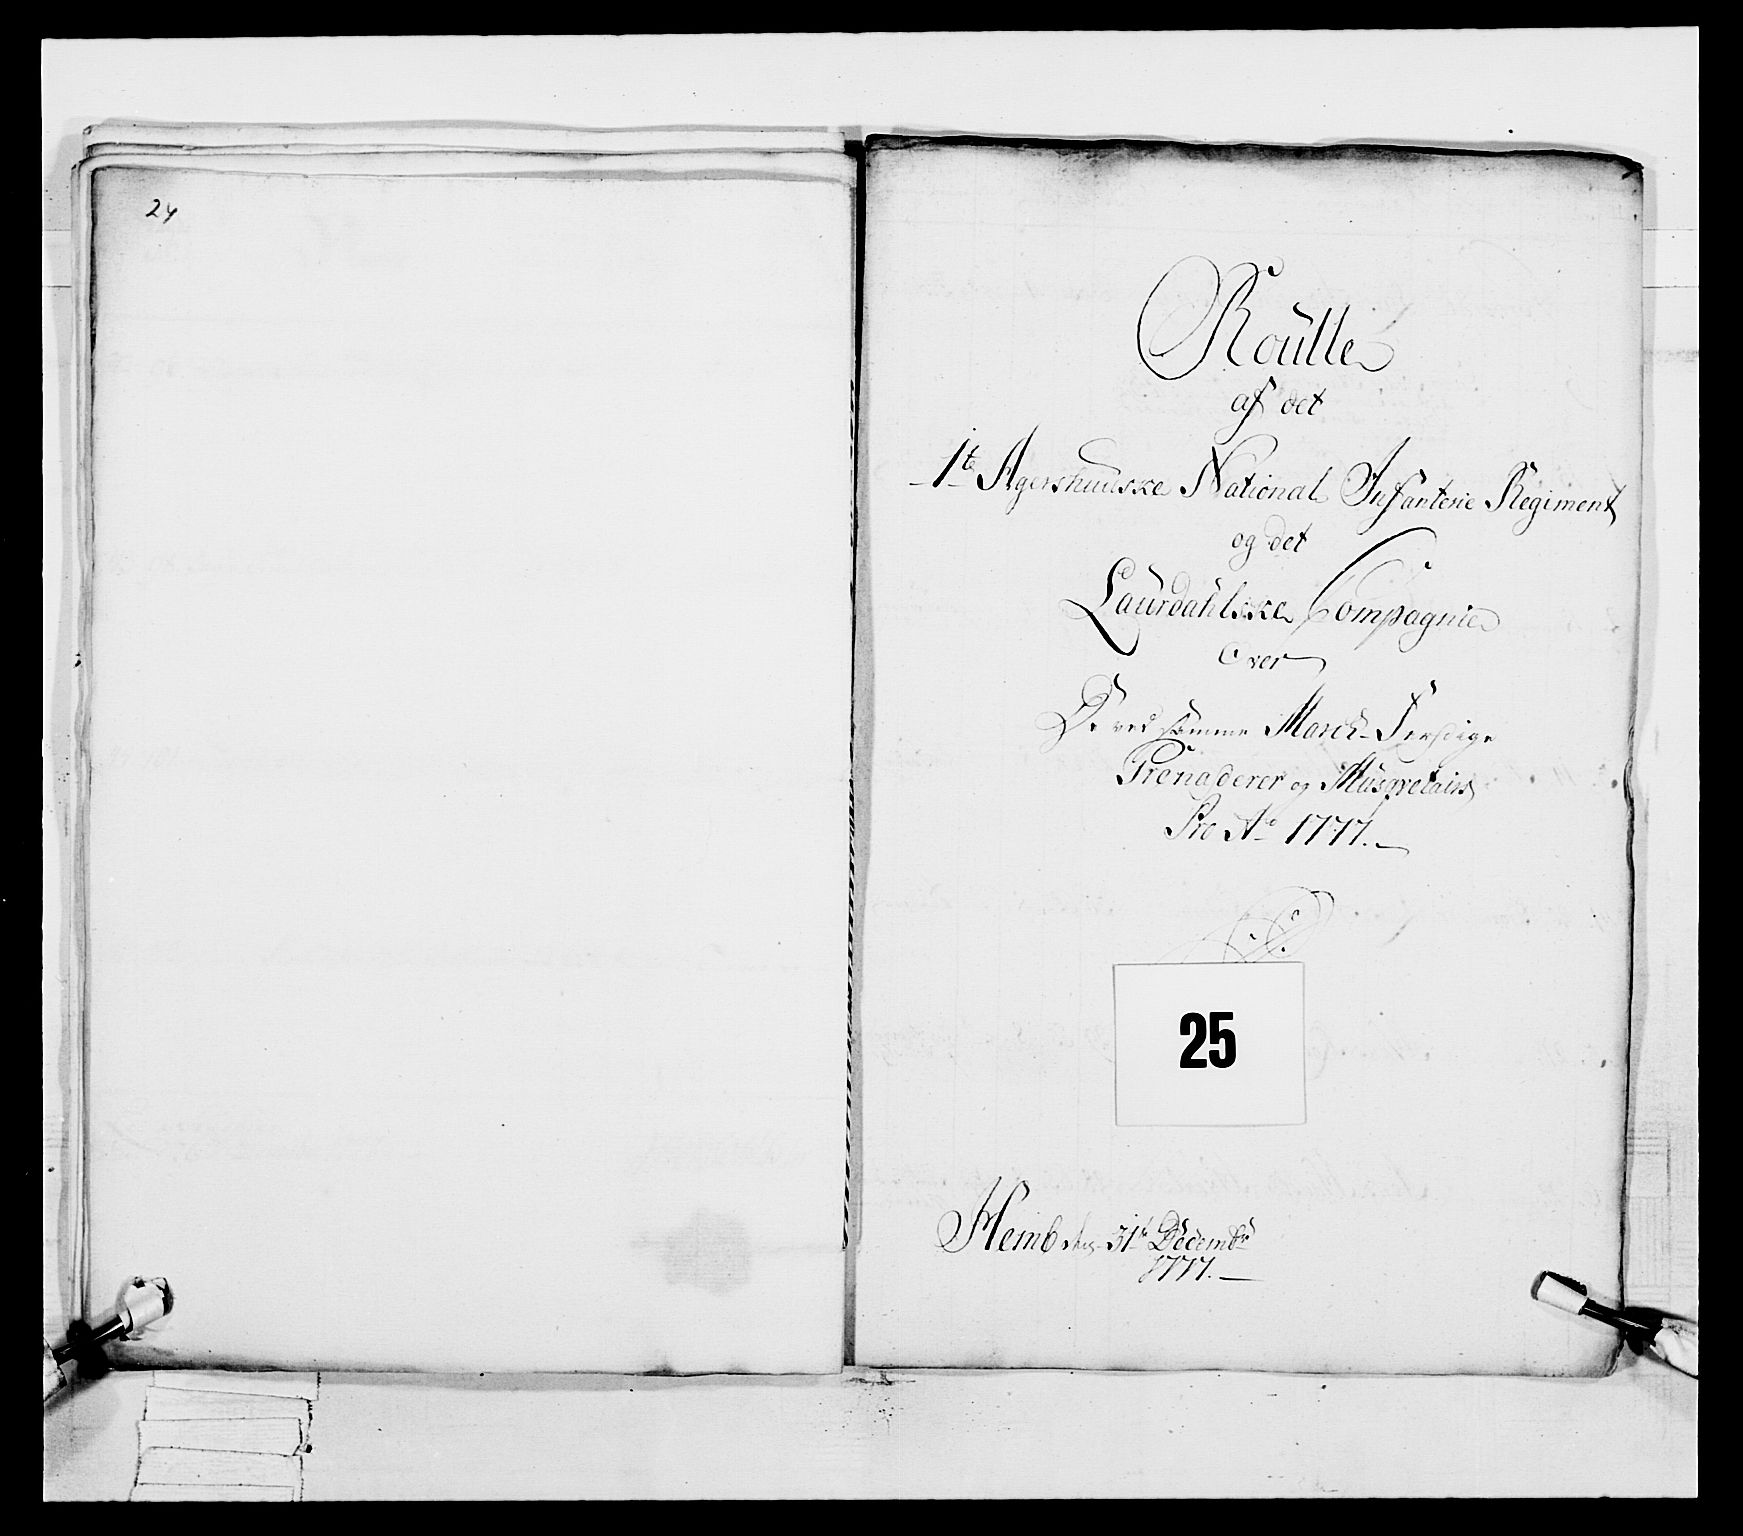 24
Roulle
af det
1te Agershuuske National Infanterie Regiment
og det
Laurdahlske Compagnie
Over
De ved samme March-Ferdige
Grenaderer og Musqvetairs
Pro Ao 1777.
25
Hemb 31te Decembr
1777.